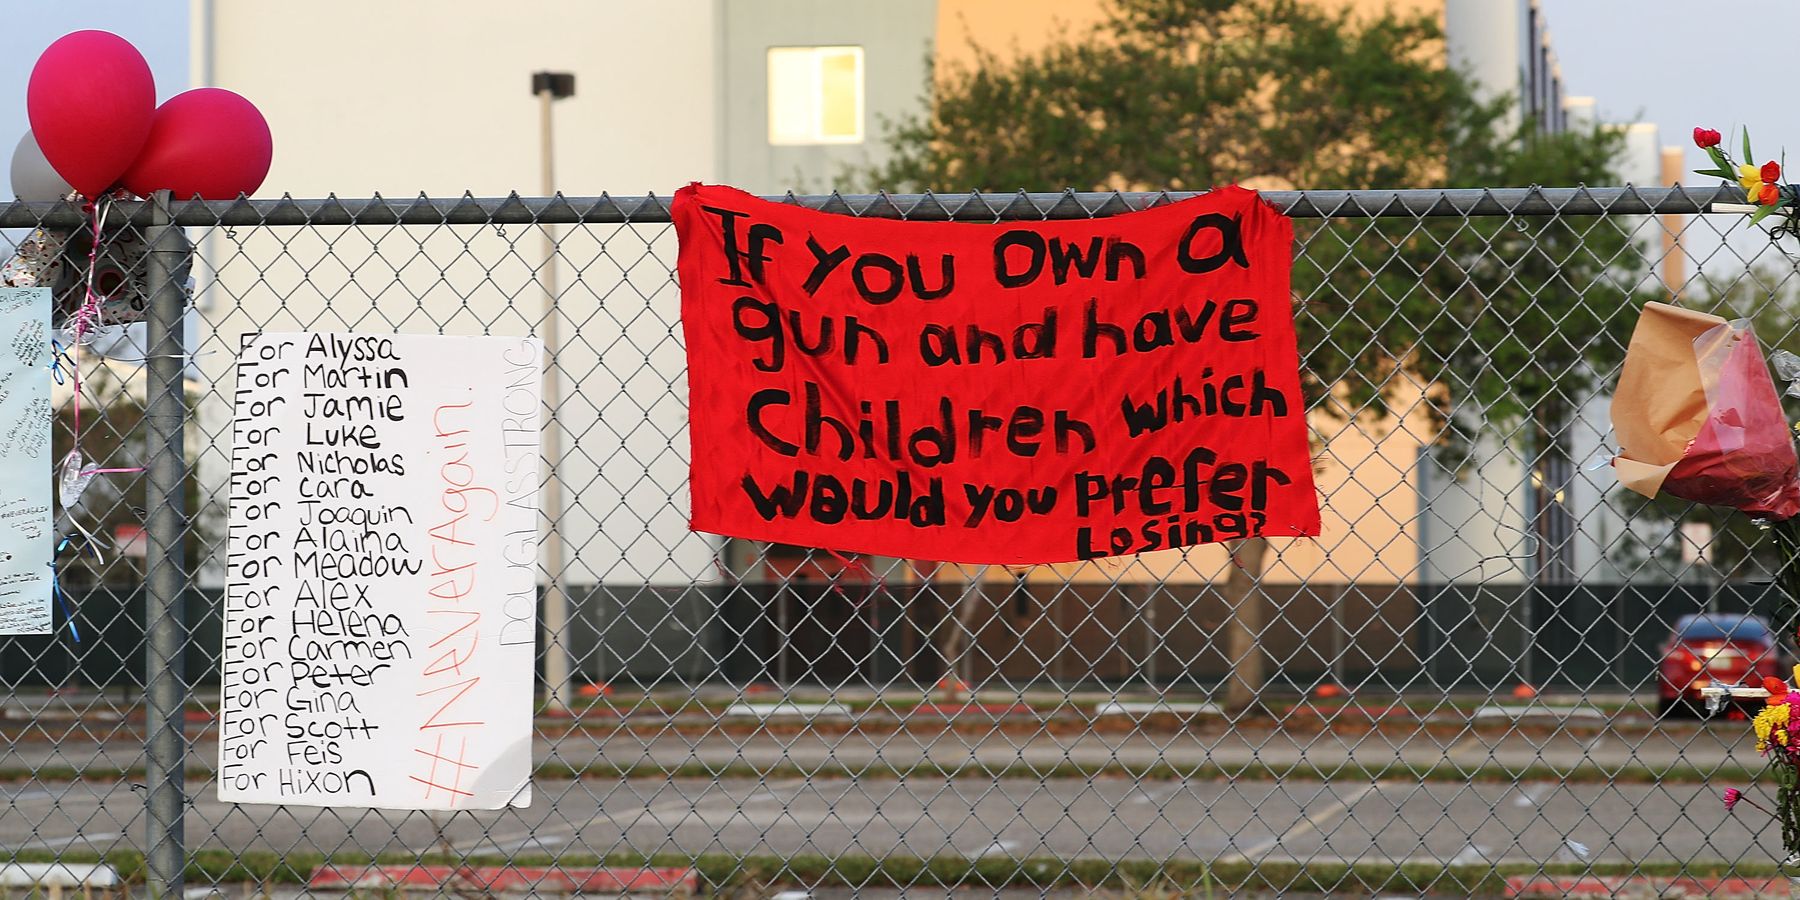 For Alyssa
For Martin
For Jamie
For Luke
For Nicholas
For Cara
For Joaquin
For Alaina
For Meadow
For Alex
For Helena
For Carmen
For Peter
For Gina
For Scott
For Feis
For Hixon
#NAVerAgain.
DOUGLASSTRONG
If you Own a
gun and have
Children which
would you prefer
Losing?